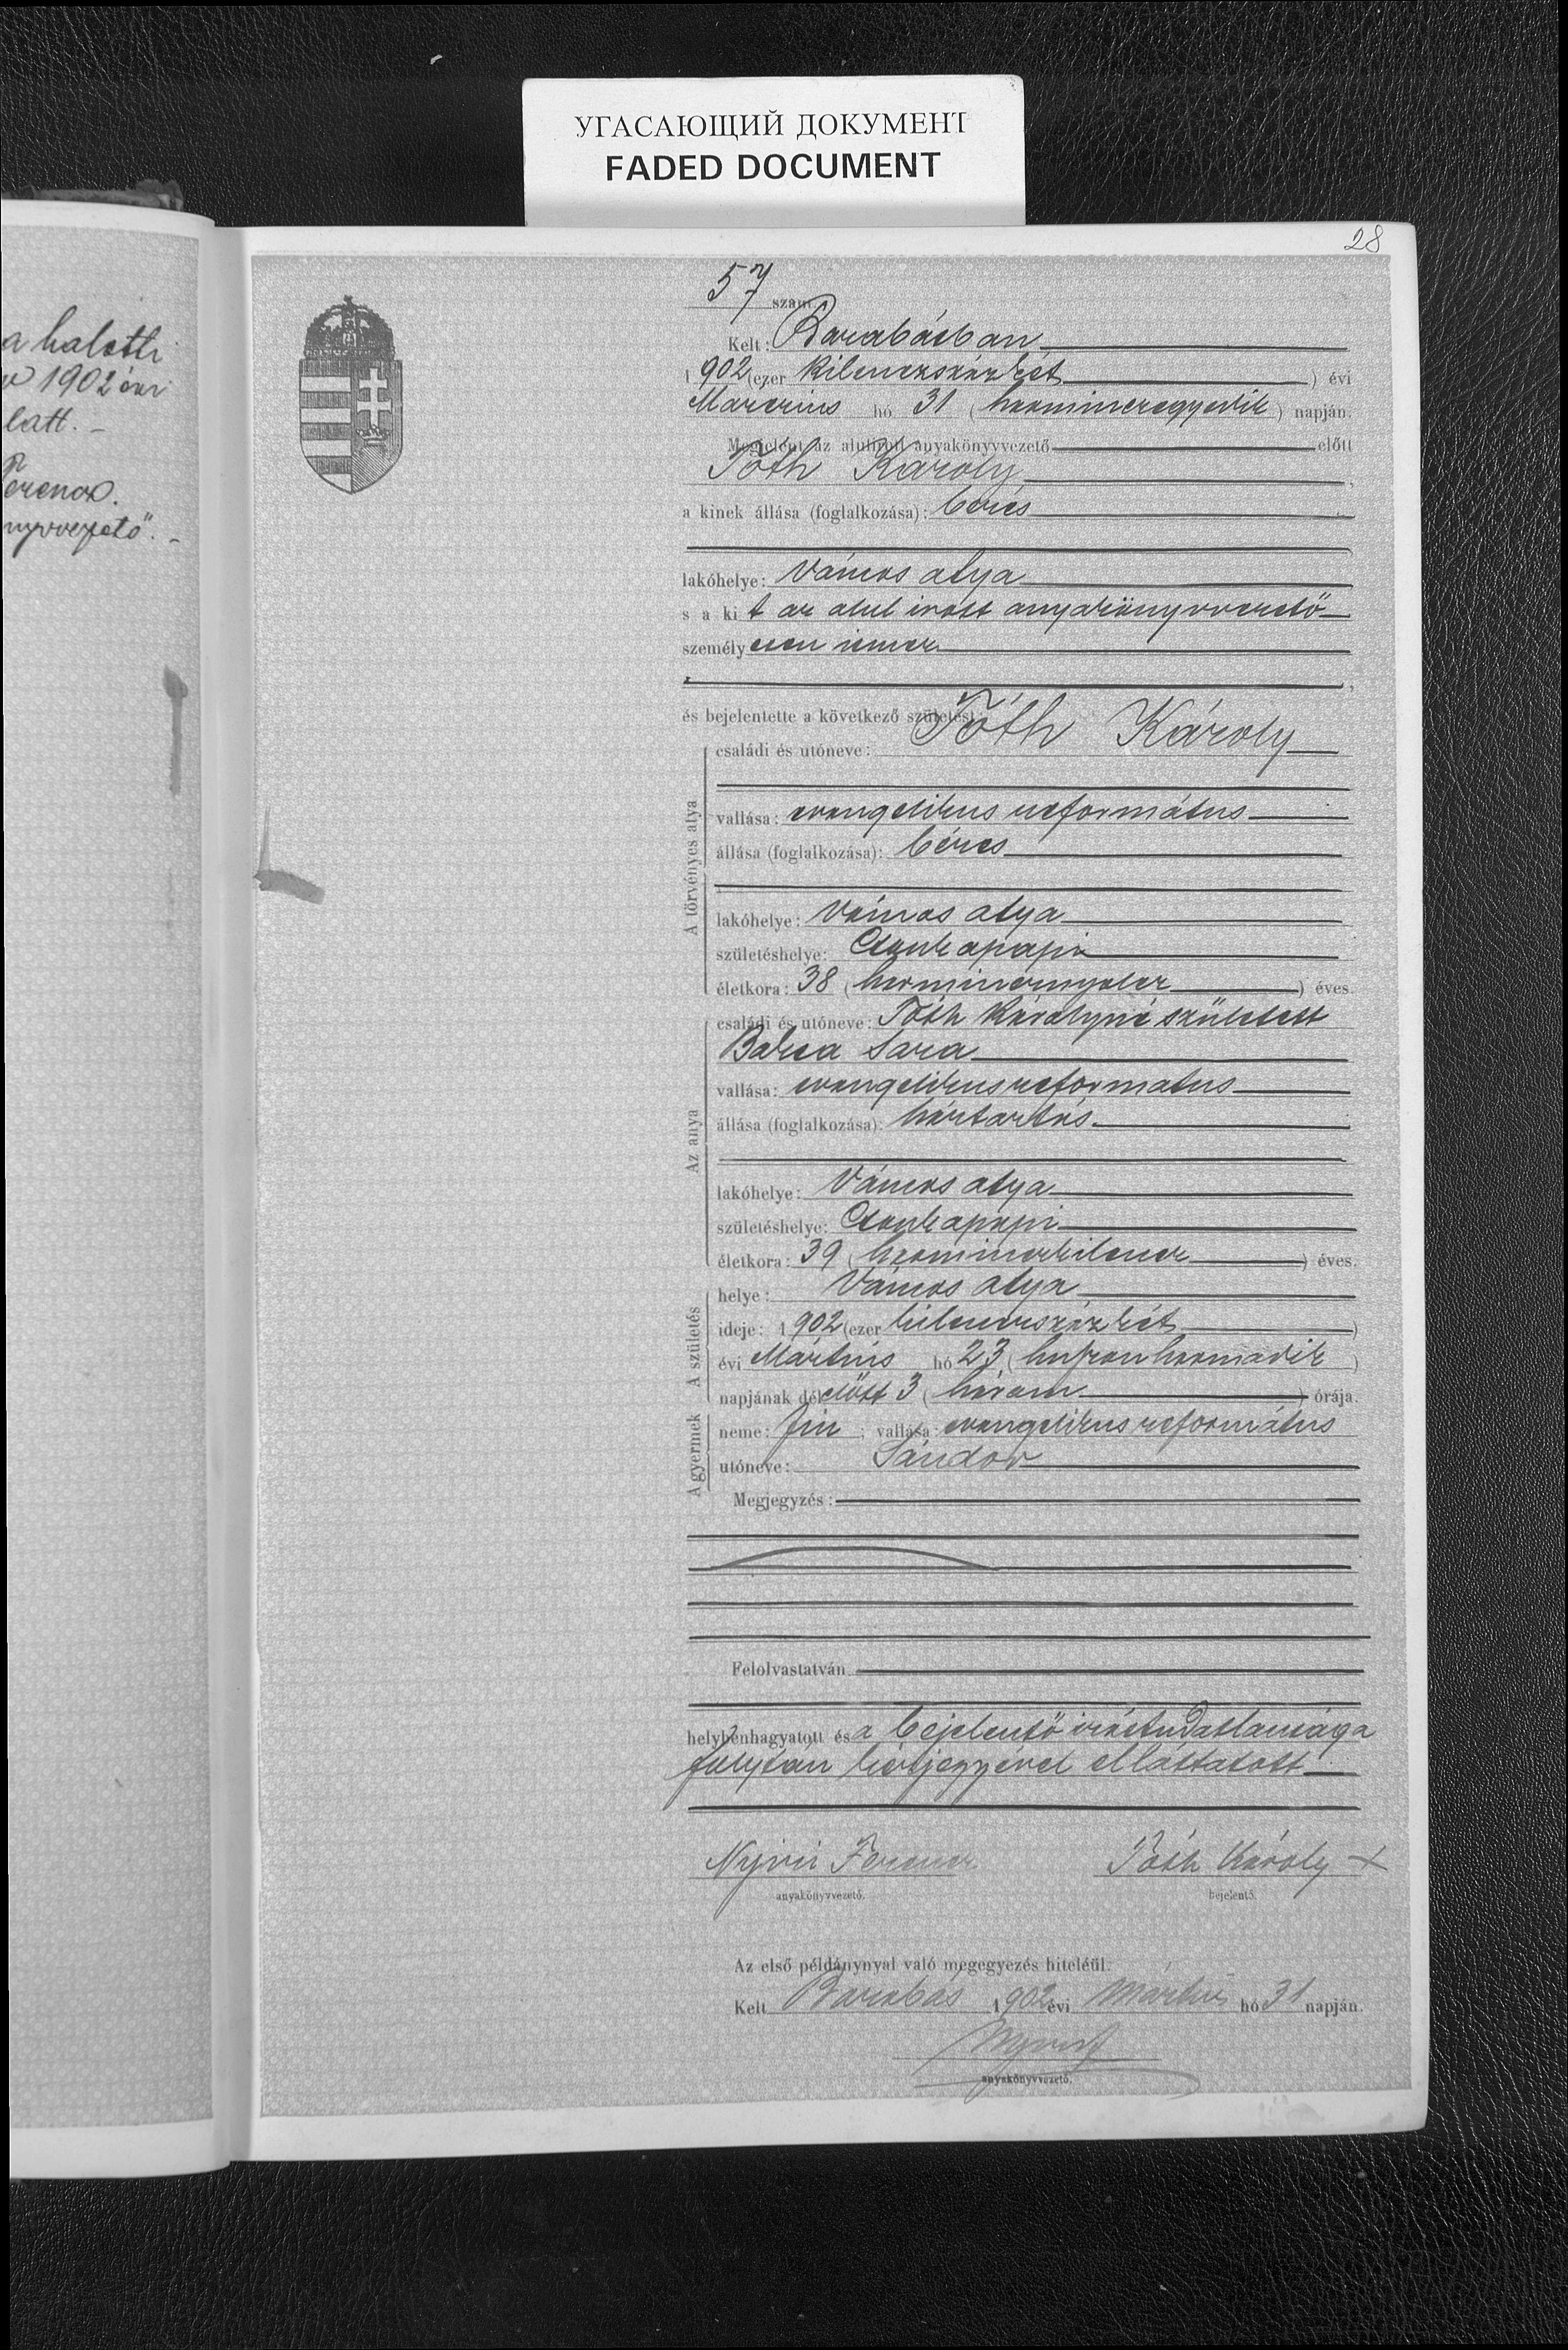 УГАСАЮЩИЙ ДОКУМЕНТ
FADED DOCUMENT
a halotti
1902 évi
latt. –
Ferencz.
nyvvezető". –
28
57 szám
Kelt: Barabásban
1902 (ezer kilenczszázkét) évi
Marczius hó 31 (harminczegyedik) napján.
Megjelent az alulirott anyakönyvvezető előtt
Tóth Károly,
a kinek állása (foglalkozása): béres
lakóhelye: Vámos atya
s a kit az alul irott anyakönyvvezető
személyesen ismer
,
és bejelentette a következő születést:
A törvényes atya
családi és utóneve: Tóth Károly
vallása: evangelikus református
állása (foglalkozása): béres
lakóhelye: Vámos atya
születéshelye: Csonkapapi
életkora: 38 (harmincznyolcz) éves.
Az anya
családi és utóneve: Tóth Károlyné született
Sara
vallása: evangelikus reformatus
állása (foglalkozása): háztartás
lakóhelye: Vámos atya
születéshelye: Csonkapapi
életkora: 39 (harminczkilencz) éves.
A születés
helye: Vámos atya
ideje: 1902 (ezer kilenczszázkét)
évi Mártius hó 23 (huszonharmadik)
napjának délelőtt 3 (három) órája.
A gyermek
neme: fiu; vallása: evangelikus református
utóneve: Sándor
Megjegyzés:
Felolvastatván
helybenhagyatott és a bejelentő irástudatlansága
folytán kézjegyével elláttatott
Nyiri Ferencz Tóth Károly +
anyakönyvvezető. bejelentő.
Az első példánynyal való megegyezés hiteléül.
Kelt Barabás 1902 évi Mártius hó 31 napján.
anyakönyvvezető.